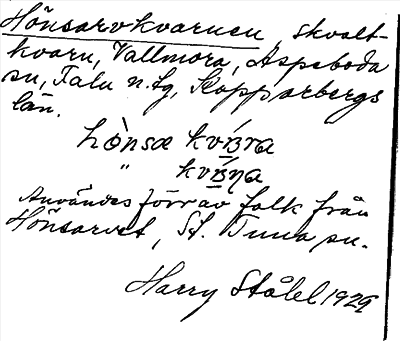 Hönsarvkvarnen, skvalt-
kvarn, Vallmora, Aspeboda
sn, Falu n. tg, Kopparbergs
län.
hònsæ kvíʀra
" kvíʀņa
Användes förr av folk från
Hönsarvet, St. Tuna sn.
Harry Ståhl 1929